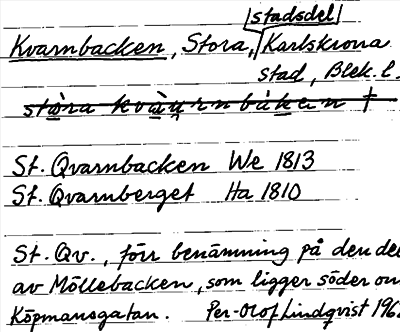 stadsdel
Kvarnbacken, Stora, Karlskrona
stad, Blek. l.
stòra kvàrnbàken †
St. Qvarnbacken We 1813
St. Qvarnberget Ha 1810
St. Qv., förr benämning på den del
av Möllebacken, som ligger söder om
Köpmansgatan. Per-Olof Lindqvist 196